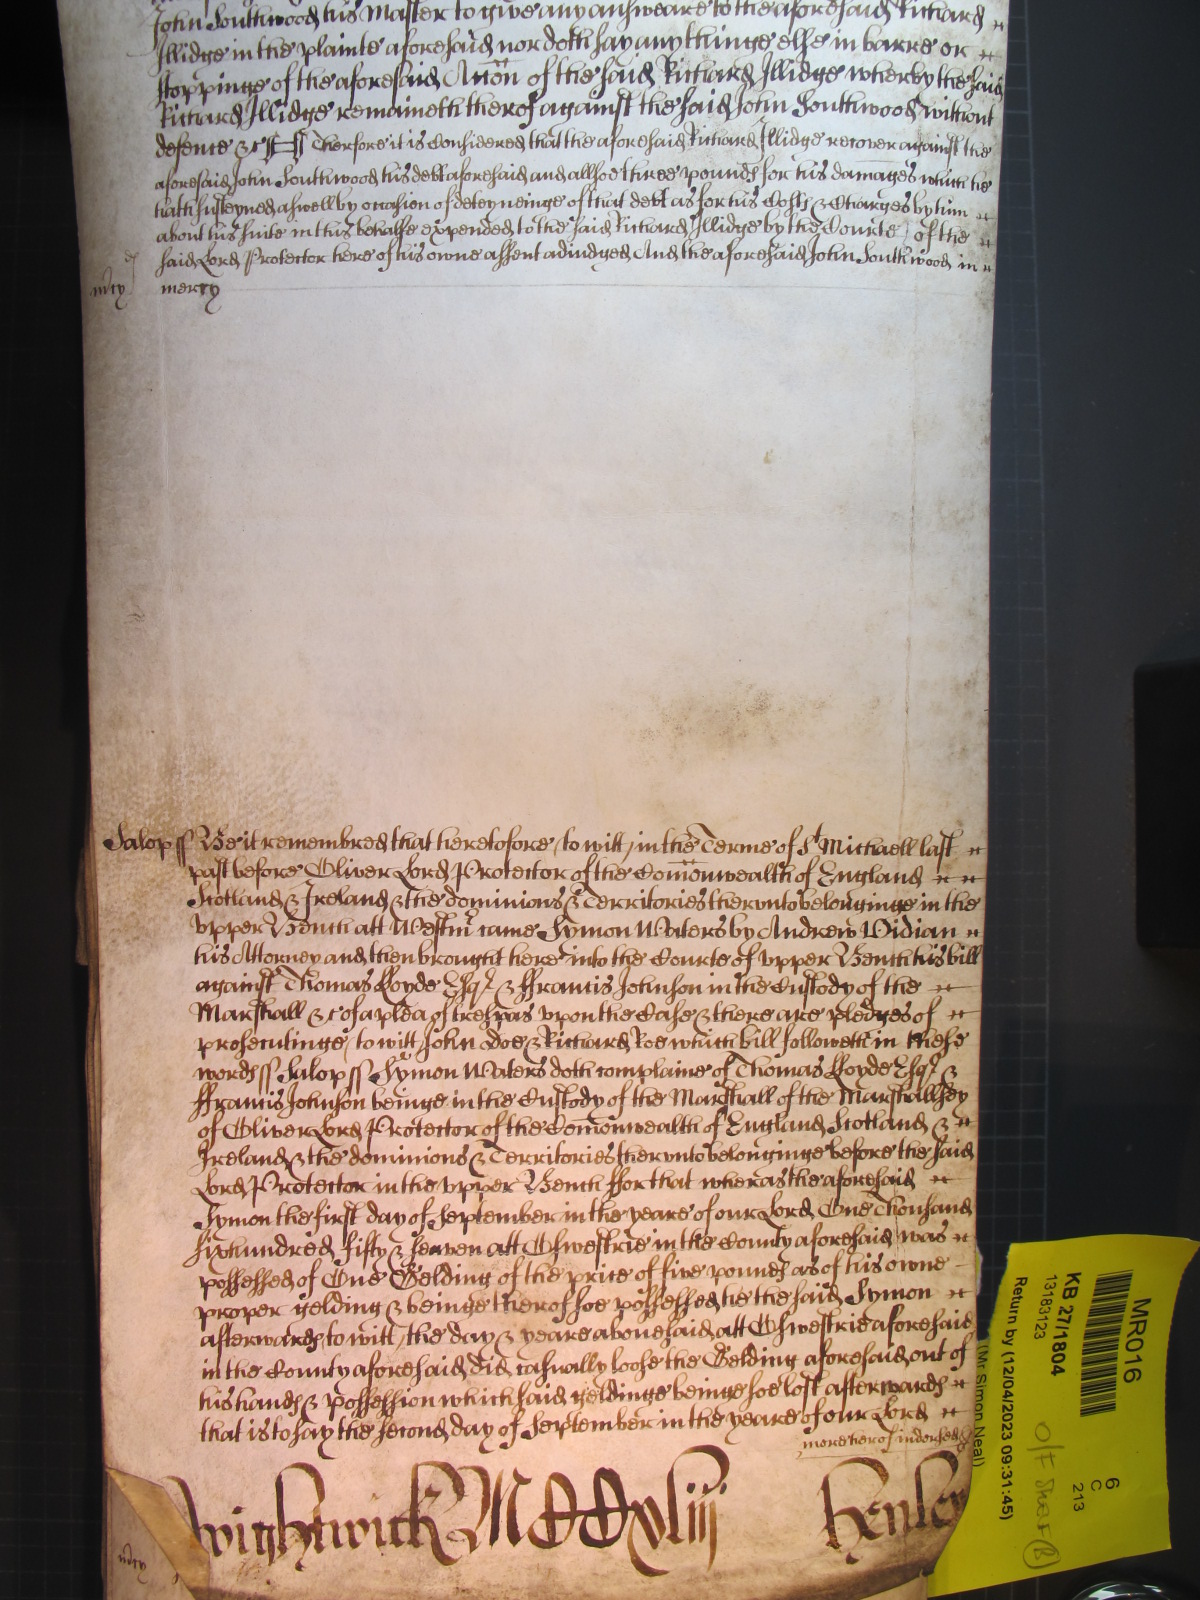 John Southwood his Master to give any answeare to the aforesaid Richard
Illidge in the plainte aforesaid nor doth say any thinge else in barre or
stoppinge of the aforesaid Accon of the said Richard Illidge wherby the said
Richard Illidge remaineth therof against the said John Southwood without
defence &c Therfore it is Considered that the aforesaid Richard Illidge recover against the
aforesaid John Southwood his debt aforesaid and allsoe three pounds for his damages which he
hath susteyned aswell by occasion of deteyneinge of that debt as for his Costs & Charges by him
about his suite in his behalfe expended to the said Richard Illidge by the Courte of the
said Lord Protector here of his owne assent adiudged And the aforesaid John Southwood in
mcy mercy
Salop ss Be it remembred that heretofore to witt in the Terme of St Michaell last
past before Oliver Lord Protector of the Comonwealth of England
Scotland & Ireland & the dominions & Territories therunto belonginge in the
upper Bench att Westmr came Symon Waters by Andrew Vidian
his Attorney and then brought here into the Courte of upper Bench his bill
against Thomas Lloyde Esqr & ffrancis Johnson in the Custody of the
Marshall &c of a plea of trespas upon the Case & there are pledges of
prosecutinge to witt John Doe & Richard Roe which bill followeth in these
words ss Salop ss Symon Waters doth complaine of Thomas Lloyde Esqr &
ffrancis Johnson beinge in the Custody of the Marshall of the Marshallsey
of Oliver Lord Protector of the Comonwealth of England Scotland &
Ireland & the dominions & Territories therunto belonginge before the said
Lord Protector in the upper Bench ffor that wheras the aforesaid
Symon the first day of September in the yeare of our Lord One Thousand
six hundred fifty & seaven att Oswestrie in the County aforesaid was
possessed of One Gelding of the price of five pounds as of his owne
proper gelding & beinge therof soe possessed he the said Symon
afterwards to witt the day & yeare abovesaid att Oswestrie aforesaid
in the County aforesaid did casually loose the Gelding aforesaid out of
his hands & possession which said geldinge beinge soe lost afterwards
that is to say the second day of September in the yeare of our Lord
more herof indorsed
Wightwick MCCxliii Henley
mcy
MR016
KB 27/1804
13183123
Return by (12/04/2023 09:31:45)
(Mr Simon Neal)
6
C
213